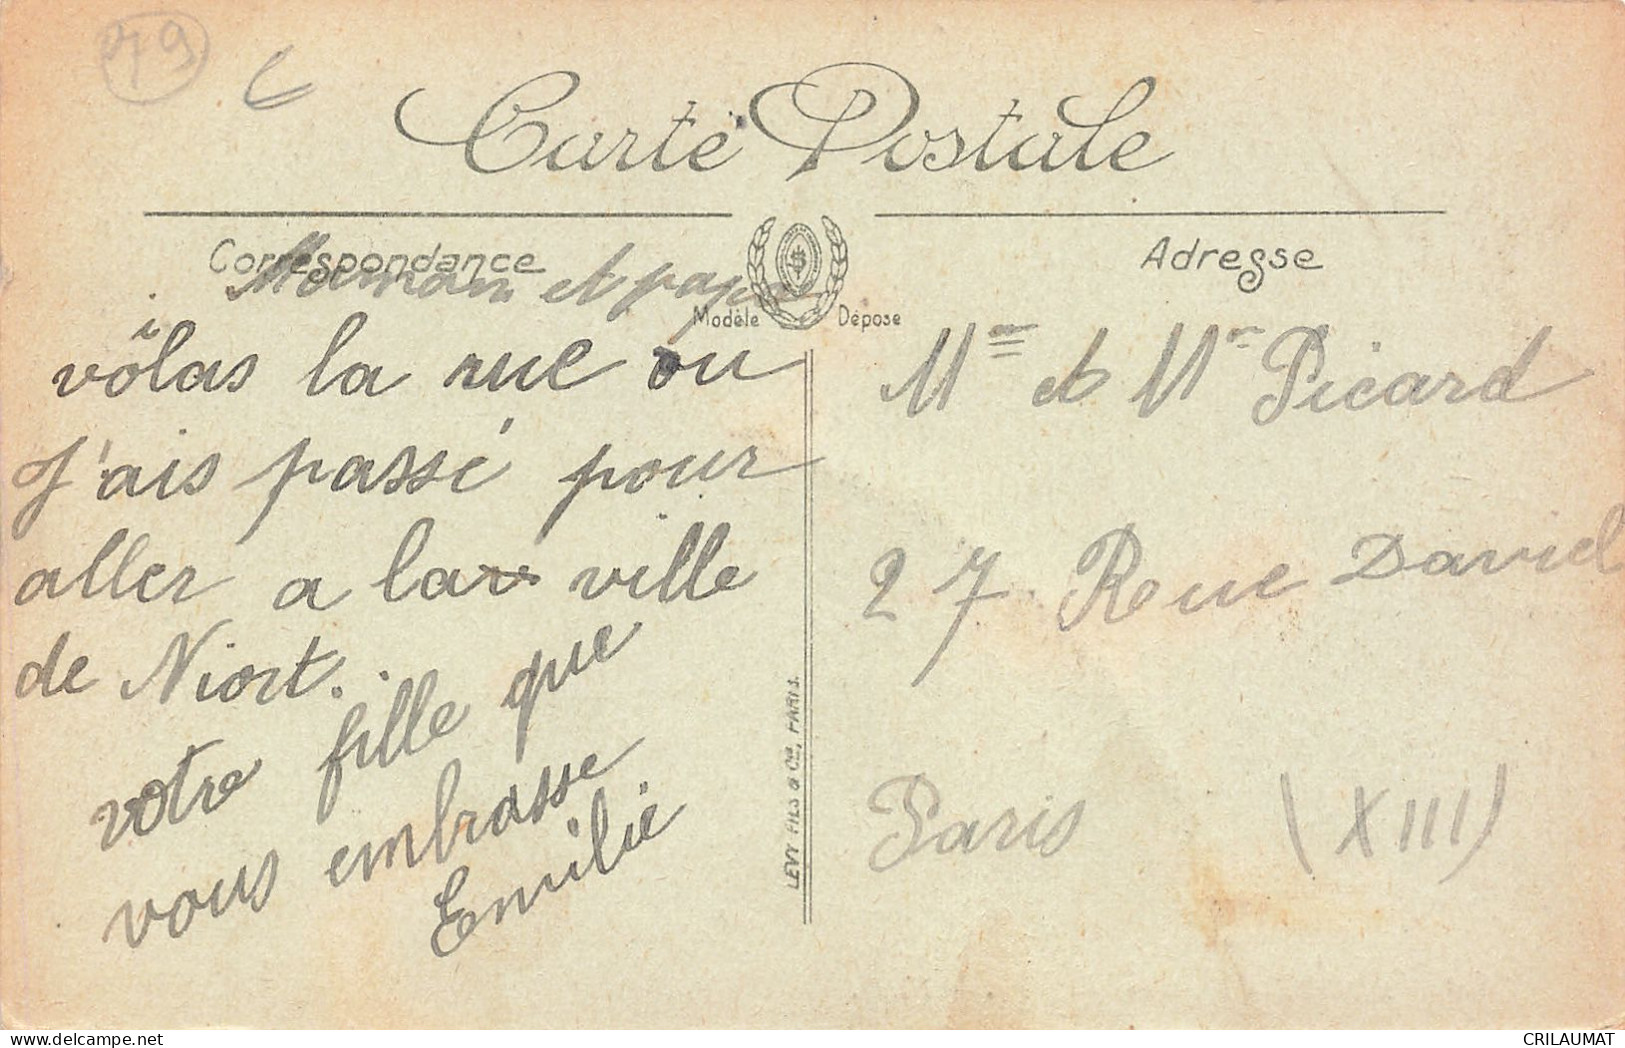 79
Carte Postale
Correspondance
Adresse
Modèle Déposé
Maman et papa
vôlas la rue ou
j'ais passé pour
aller a la ville
de Niort..
votre fille que
vous embrasse
Emilie
LEVY FILS & Cie, PARIS.
Mme et Mr Picard
27 Rue David
Paris (XIII)
CRILAUMAT